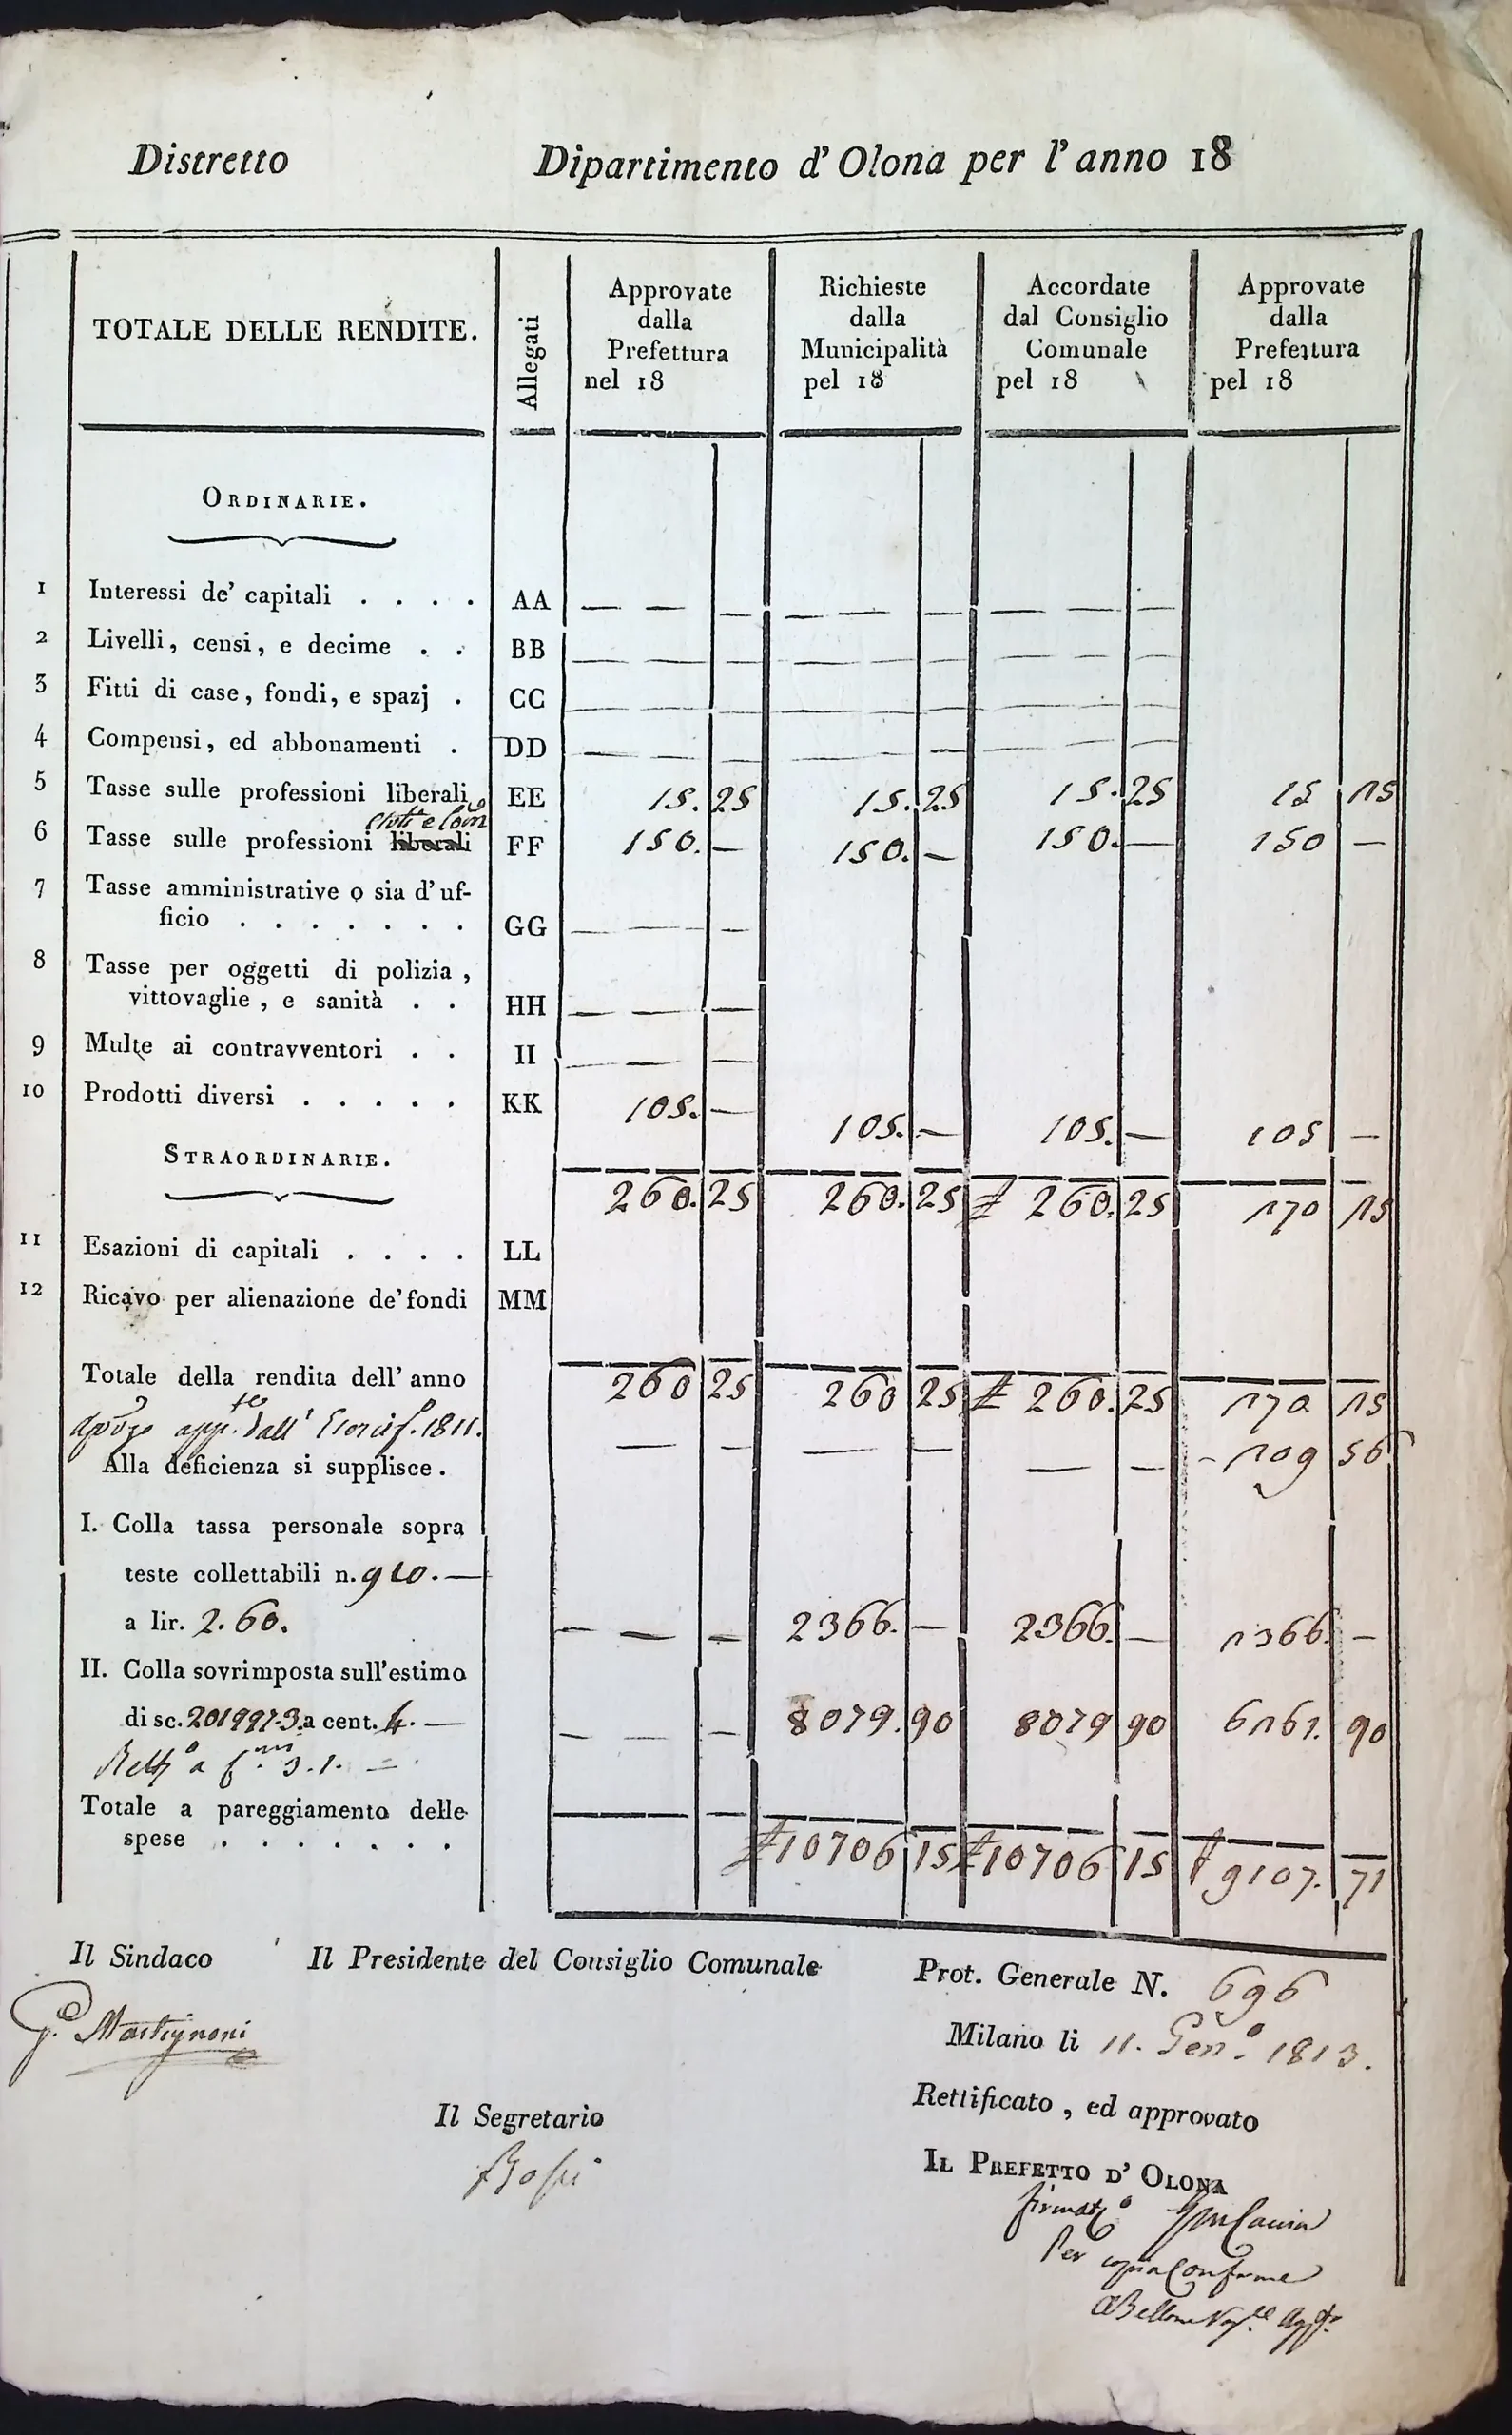 Distretto Dipartimento d' Olona per l' anno 18
TOTALE DELLE RENDITE.
Allegati
Approvate dalla Prefettura nel 18
Richieste dalla Municipalità pel 18
Accordate dal Consiglio Comunale pel 18
Approvate dalla Prefettura pel 18
ORDINARIE.
1 Interessi de' capitali . . . . AA — — — — — — — — —
2 Livelli, censi, e decime . . BB — — — — — — — — —
3 Fitti di case, fondi, e spazj . CC — — — — — — — — —
4 Compensi, ed abbonamenti . DD — — — — — — — — —
5 Tasse sulle professioni liberali EE 15. 25 15. 25 15. 25 15 25
e Com
6 Tasse sulle professioni liberali FF 150. — 150. — 150. — 150 —
7 Tasse amministrative o sia d' uf-
ficio . . . . . . . GG — — —
8 Tasse per oggetti di polizia,
vittovaglie, e sanità . . HH — — —
9 Multe ai contravventori . . II — — —
10 Prodotti diversi . . . . . KK 105. — 105. — 105. — 105 —
STRAORDINARIE.
260. 25 260. 25 £ 260. 25 270 25
11 Esazioni di capitali . . . . LL
12 Ricavo per alienazione de' fondi MM
Totale della rendita dell' anno 260 25 260 25 £ 260. 25 270 25
app.te dall' 1811. — — — — — — - 209 56
Alla deficienza si supplisce.
I. Colla tassa personale sopra
teste collettabili n. 910. —
a lir. 2. 60. — — — 2366. — 2366. — 2366. —
II. Colla sovrimposta sull' estimo
di sc. 201997.3. a cent. 4. — — — — 8079. 90 8079 90 6261. 90
a 3. 1. =
Totale a pareggiamento delle
spese . . . . . . . £ 10706 15 £ 10706 15 £ 9107. 71
Il Sindaco Il Presidente del Consiglio Comunale Prot. Generale N. 696
G. Martignoni
Milano li 11. Gen.o 1813.
Rettificato, ed approvato
Il Segretario
Bossi
IL PREFETTO D' OLONA
firmato
Per copia Conforme